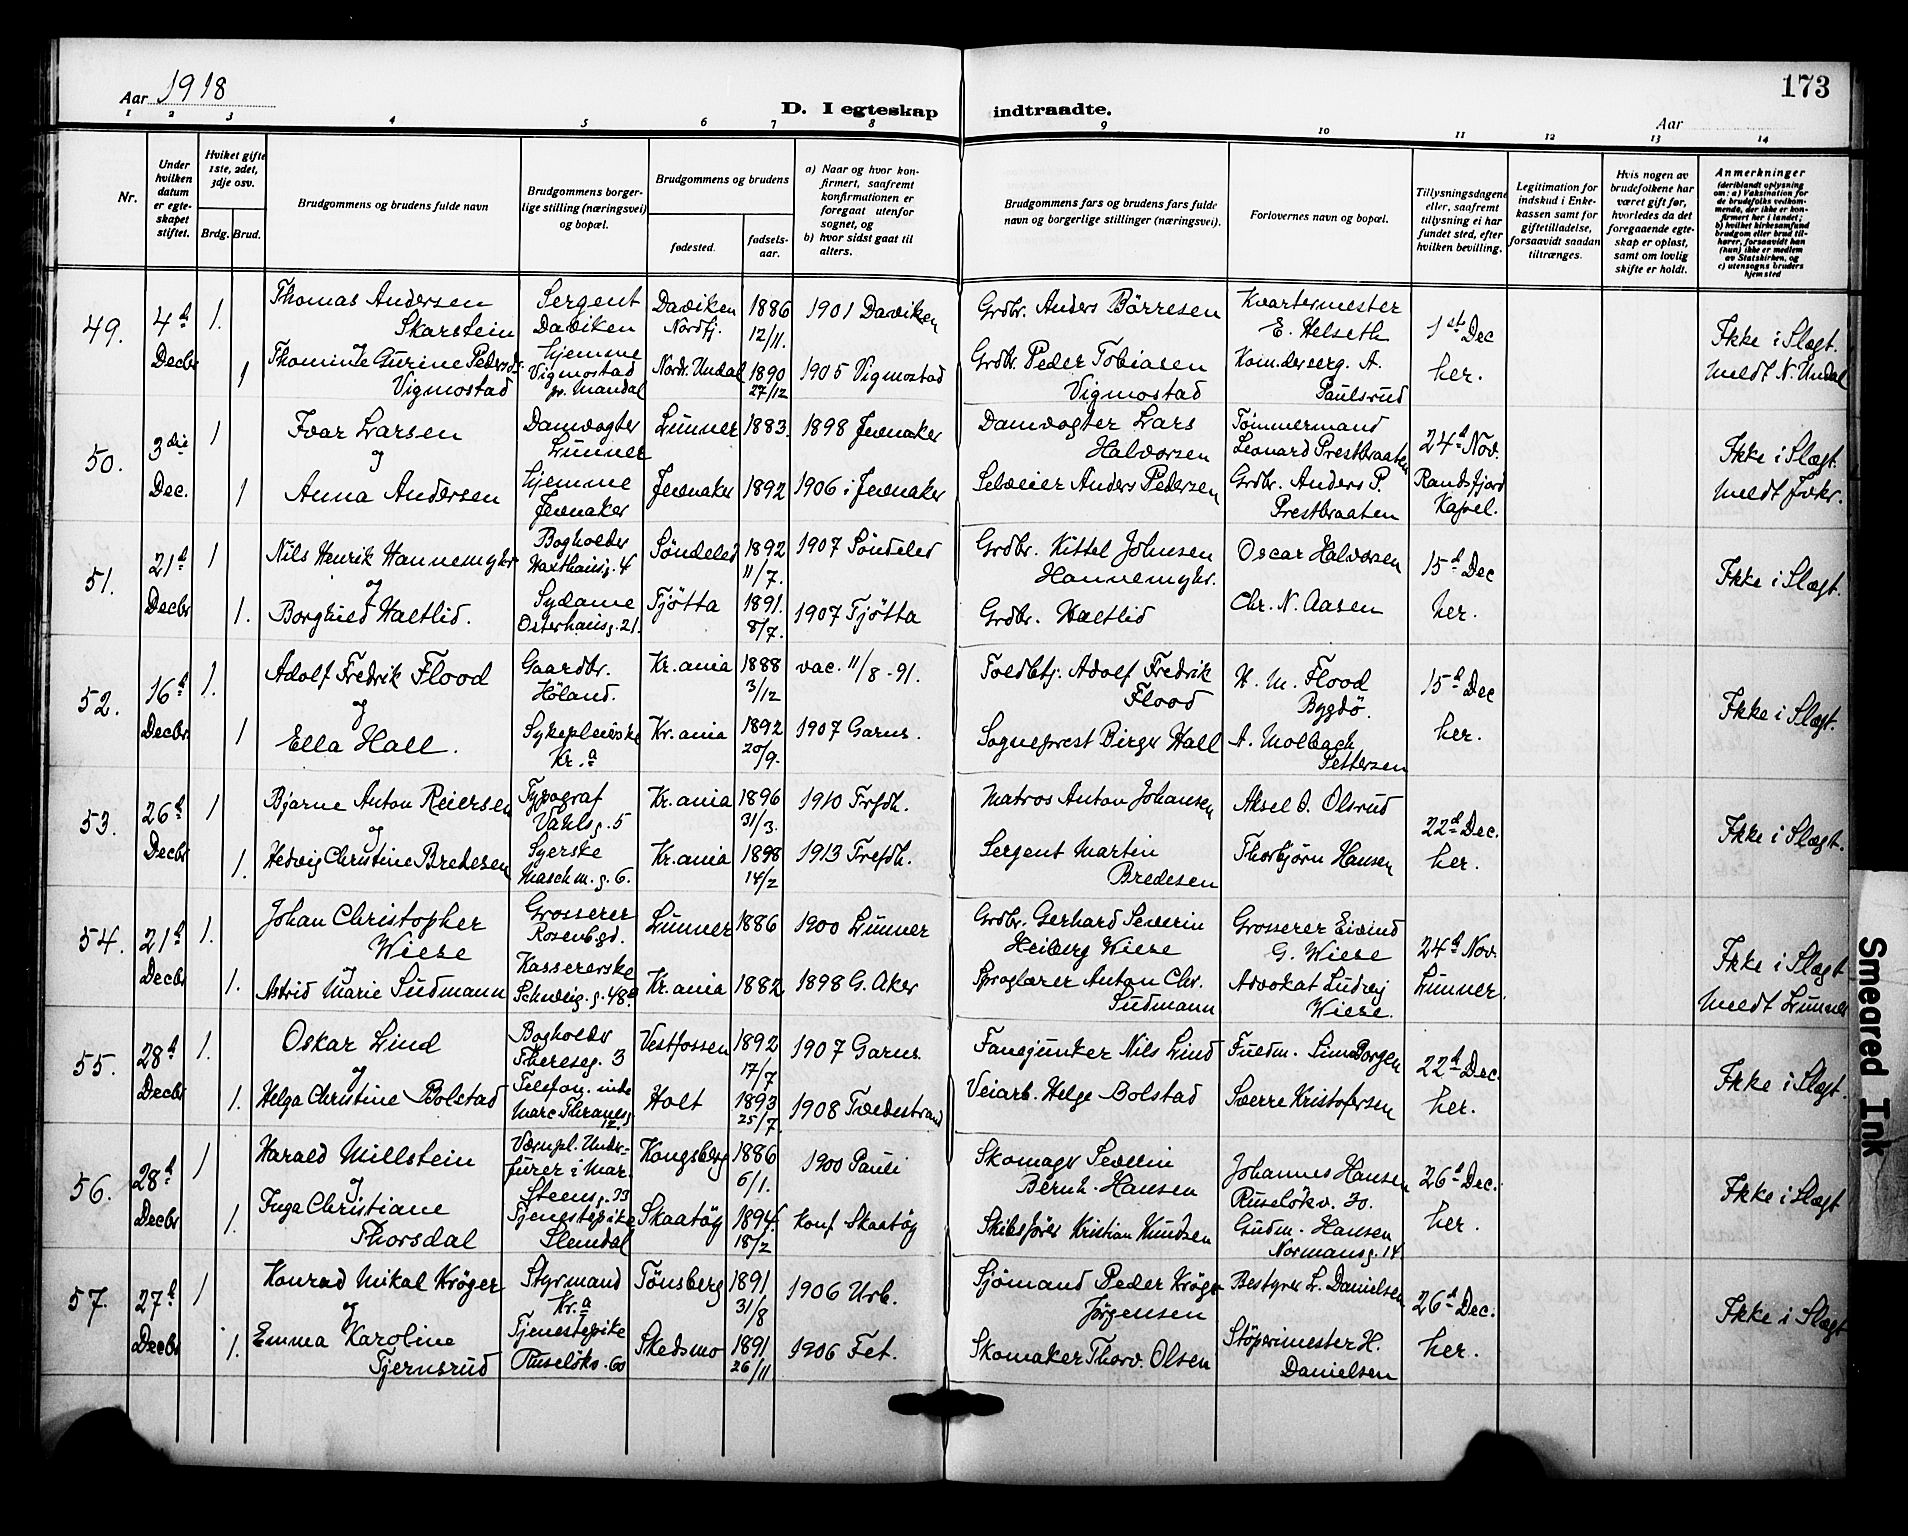 Aar 1918
D. I egteskap indtraadte.
Aar
173
1 2 3 4 5 6 7 8 9 10 11 12 13 14
Nr.
Under hvilken datum er egte-skapet stiftet.
Hviket gifte 1ste, 2det, 3dje osv.
Brdg. Brud.
Brudgommens og brudens fulde navn
Brudgommens borger-lige stilling (næringsvei) og bopæl.
Brudgommens og brudens
fødested.
fødsels-aar.
a) Naar og hvor kon-firmert, saafremt konfirmationen er foregaat utenfor sognet, og
b) hvor sidst gaat til alters.
Brudgommens fars og brudens fars fulde navn og borgerlige stillinger (næringsvei).
Forlovernes navn og bopæl.
Tillysningsdagene eller, saafremt tillysning ei har fundet sted, efter hvilken bevilling.
Legitimation for indskud i Enke-kassen samt for giftetilladelse, forsaavidt saadan tiltrænges.
Hvis nogen av brudefolkene har været gift før, hvorledes da det foregaaende egte-skap er opløst, samt om lovlig skifte er holdt.
Anmerkninger
(deriblandt oplysning om: a) Vaksination for de brudefolks vedkom-mende, der ikke er kon-firmert her i landet; b) hvilket kirkesamfund brudgom eller brud til-hører, forsaavidt han (hun) ikke er medlem av Statskirken, og c) utensogns bruders hjemsted
49. 4d Decbr 1. Thomas Andersen Skarstein Sergent Daviken Daviken Nordfj. 1886 12/11. 1901 Daviken Grdbr. Anders Börresen Kvartermester E. Helseth 1ste Dec her. Ikke i Slægt. Meldt N. Undal
og
1 Gurine Vigmostad Hjemme Vigmostad pr. Mandal Nordr. Undal 1890 27/12 1905 Vigmostad Grdbr. Peder Tobiasen Vigmostad A. Paulsrud
50. 3die Dec. 1 Ivar Larsen Damvogter Lunner Lunner 1883. 1898 Jevnaker Damvogter Lars Halvorsen Tömmermand Leonard Prestbraaten 24d Nov. Randsfjord Kapel. Ikke i Slægt. Meldt Jvkr.
og
1 Anna Andersen Hjemme Jevnaker Jevnaker 1892 1906 i Jevnaker Selveier Anders Pedersen Grdbr. Anders P. Prestbraaten
51. 21d Decbr 1 Nils Henrik Hannemyhr Bogholder 4 Söndeled 1892 11/7. 1907 Söndeled Grdbr. Kittel Johnsen Hannemyhr. Oscar Halvorsen 15d Dec her. Ikke i Slægt.
og
1. Borghild Haltlid. Sydame Osterhausg. 21. Tjøtta 1891. 8/7. 1907 Tjøtta Grdbr. Haltlid Chr. N. Aasen
52. 16d Decbr. 1. Adolf Fredrik Flood Gaardbr. Höland. Kr.ania 1888 3/12 vac. 11/8 - 91. Toldbtj. Adolf Fredrik Flood H. M. Flood Bygdö. 15d Dec her. Ikke i Slægt.
og
1 Ella Hall. Sykepleierske Kr.a Kr.ania 1892 20/9. 1907 Garns. Sogneprest Birger Hall A. Molbach Pettersen
53. 26d Decbr 1 Bjarne Anton Reiersen Typograf Vahlsg. 5 Kr.ania 1896 31/3. 1910 Trefdh. Matros Anton Johansen Aksel O. Olsrud 22d Dec. her. Ikke i Slægt.
og
1. Hedvig Christine Bredesen Syerske Maschm.g. 6. Kr.ania 1898 14/2 1913 Trefdh. Sergent Martin Bredesen Thorbjörn Hansen
54. 21d Decbr 1. Johan Christopher Wiese Grosserer Rosenbgd. Lunner 1886 1900 Lunner Grdbr. Gerhard Severin Heiberg Wiese Grosserer Eivind G. Wiese 24d Nov. Lunner. Ikke i Slægt Meldt Lunner
og
1. Astrid Marie Sudmann Kassererske Schweig.g. 48a Kr.ania 1882 1898 G. Aker Sproglærer Anton Chr. Sudmann Advokat Ludvig Wiese.
55. 28d Decbr 1. Oskar Lind Bogholder Theresesg. 3 Vestfossen 1892 17/7 1907 Garns Fanejunker Nils Lind Fuldm. Borgen 22d Dec. her. Ikke i Slægt.
og
1. Helga Christine Bolstad Telefon. Marc. Thranesg 12. Holt 1893 25/7 1908 Tvedestrand Veiarb. Helge Bolstad Sverre Kristofersen
56. 28d Decbr 1 Harald Millstein Vernpl. Under-furer i Mar. Steensg. 23 Kongsberg 1886 6/1. 1900 Pauli Skomager Severin Bernh. Hansen Johannes Hansen Ruselökv. 30. 26d Dec. her. Ikke i Slægt
og
1. Inga Christiane Thorsdal Tjenestepike Slemdal Skaatöy 1894 18/2 Konf Skaatöy Skibsförer Kristian Knudsen Gudm. Hansen Normansg. 14
57. 27d Decbr 1 Konrad Mikal Kröger Styrmand Kr.a Tönsberg 1891 31/8 1906 Urb. Sjömand Peder Kröger Jörgensen Bestyrer L. Danielsen 26d Dec. her. Ikke i Slægt
og
1. Emma Karoline Tjernsrud Tjenestepike Ruselökv. 60 Skedsmo 1891 26/11 1906 Fet. Skomaker Thorv. Olsen Stöperimester H. Danielsen
Smeared Ink